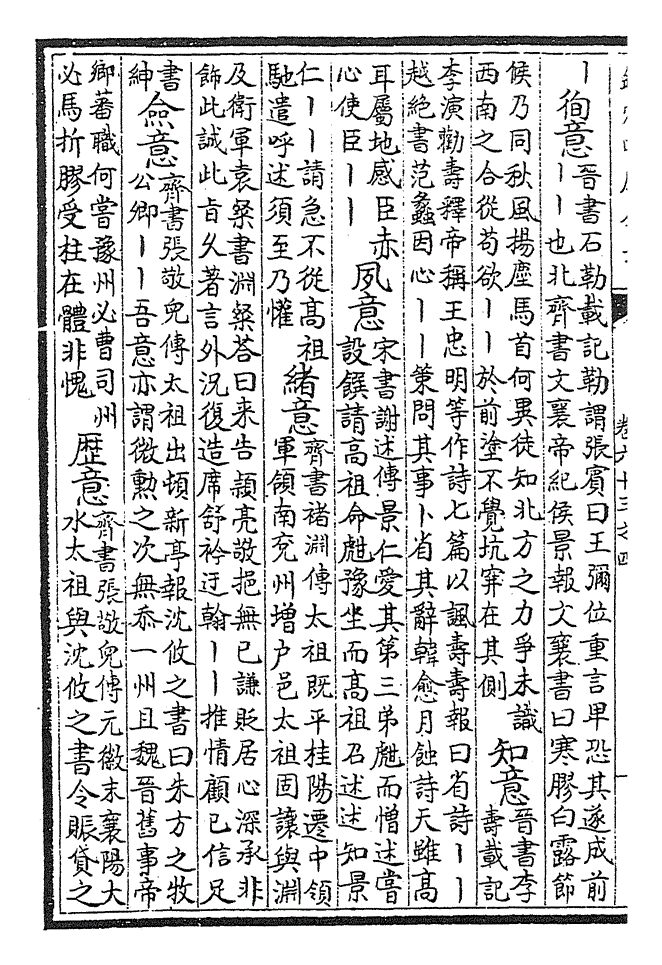 卷六十三之四
丨
徇意
晉書石勒載記勒謂張賓曰王彌位重言卑恐其遂成前
丨丨也北齊書文襄帝紀侯景報文襄書曰寒膠白露節
候乃同秋風揚塵馬首何異徒知北方之力爭未識
西南之合從苟欲丨丨於前塗不覺坑穽在其側
知意
晉書李
壽載記
李演勸壽釋帝稱王忠明等作詩七篇以諷壽壽報曰省詩丨丨
越絕書范蠡因心丨丨策問其事卜省其辭韓愈月蝕詩天雖高
耳屬地感臣赤
心使臣丨丨
夙意
宋書謝述傳景仁愛其第三弟甝而憎述嘗
設饌請高祖命甝豫坐而高祖召述述知景
仁丨丨請急不從高祖
馳遣呼述須至乃懽
緒意
齊書褚淵傳太祖既平桂陽遷中領
軍領南兗州增户邑太祖固讓與淵
及衛軍袁粲書淵粲荅曰来告頴亮敬挹無已謙貶居心深承非
飾此誠此旨久著言外況復造席舒衿迂翰丨丨推情顧已信足
書
紳
僉意
齊書張敬兒傳太祖出頓新亭報沈攸之書曰朱方之牧
公卿丨丨吾意亦謂微勲之次無忝一州且魏晉舊事帝
卿蕃職何嘗豫州必曹司州
必馬折膠受柱在體非愧
歴意
齊書張敬兒傳元徽末襄陽大
水太祖與沈攸之書令賑貸之